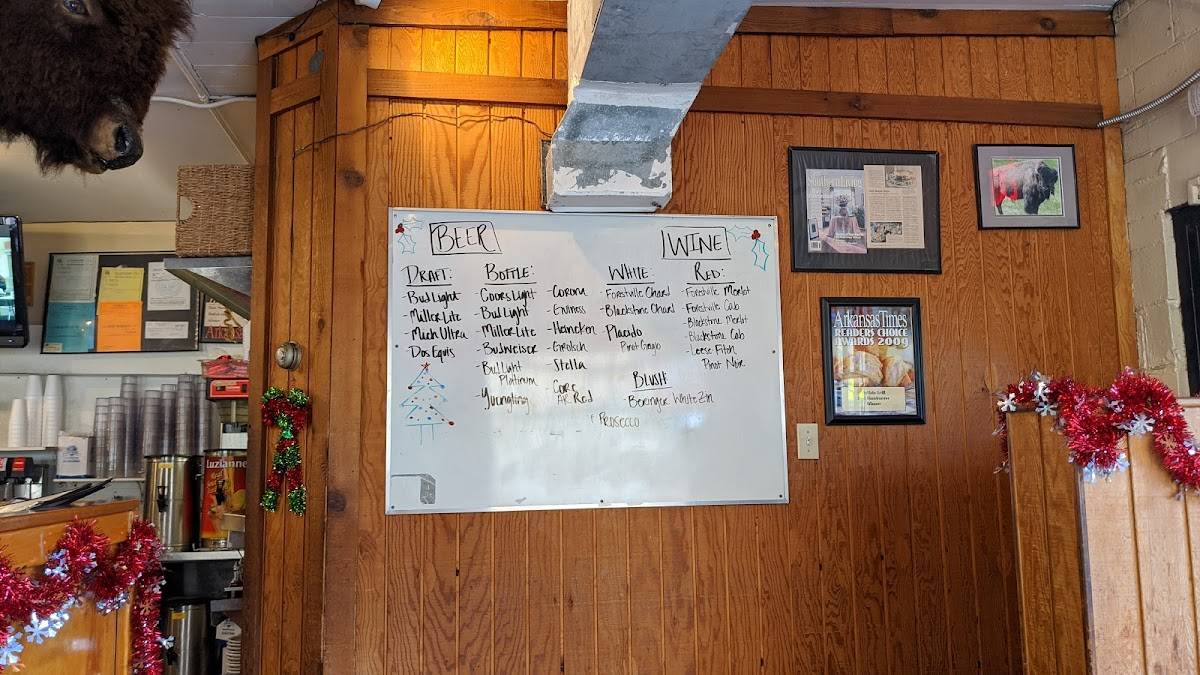 BEER
DRAFT:
- Bud Light
- Miller Lite
- Mich Ultra
- Dos Equis
BOTTLE:
- Coors Light
- Bud Light
- Miller Lite
- Budweiser
- Bud Light
Platinum
- Yuengling
- Corona
- Guiness
- Heineken
- Grolsch
- Stella
- Core
AR Red
WINE
WHITE:
- Forestville Chard
- Blackstone Chard
Placido
Pinot Grigio
RED:
- Forestville Merlot
- Forestville Cab
- Blackstone Merlot
- Blackstone Cab
- Leese Fitch
Pinot Noir
BLUSH
- Beringer White Zin
PROSECCO
Southern Living
Arkansas Times
READERS CHOICE
AWARDS 2009
LUZIANNE